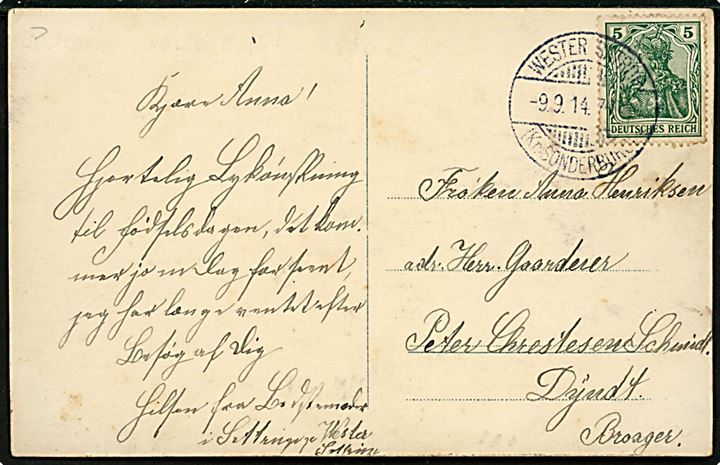 Kjære Anna!
Hjertelig Lykønskning
til Fødselsdagen, det kom-
mer jo en Dag for sent,
jeg har længe ventet efter
Besøg af Dig
Hilsen fra Bedstemoder
i Settrup Wester
WESTER
-9.9.14.
(Kr. SONDERBURG)
5 5
DEUTSCHES REICH
Frøken Anna Henriksen
adr. Herr. Gaardejer
Peter Chrestesen Schmidt.
Dÿndt.
Broager.